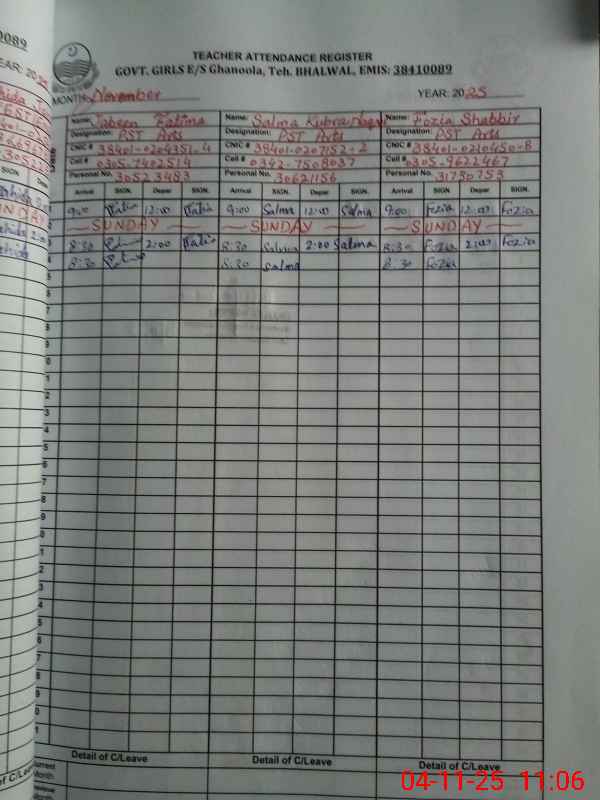 0089
TEACHER ATTENDANCE REGISTER
GOVT. GIRLS E/S Ghanoola, Teh. BHALWAL, EMIS: 38410089
MONTH: November YEAR: 2025
Name: Jabeen Fatima Name: Salma Kubra Name: Fozia Shabbir
Designation: PST Arts Designation: PST Arts Designation: PST Arts
CNIC # 38401-0204351-4 CNIC # 38401-0207152-2 CNIC # 38401-0210450-8
Cell # 0305-7402514 Cell # 0342-7508037 Cell # 0305-9622467
Personal No. 30523483 Personal No. 30621156 Personal No. 31780753
Arrival SIGN. Depar SIGN. Arrival SIGN. Depar SIGN. Arrival SIGN. Depar SIGN.
9:00 12:00 9:00 Salma 12:00 Salma 9:00 Fozia 12:00 Fozia
SUNDAY SUNDAY SUNDAY
8:30 2:00 8:30 Salma 2:00 Salma 8:30 Fozia 2:00 Fozia
8:30 8:30 Salma 8:30 Fozia
Detail of C/Leave Detail of C/Leave Detail of C/Leave
04-11-25 11:06